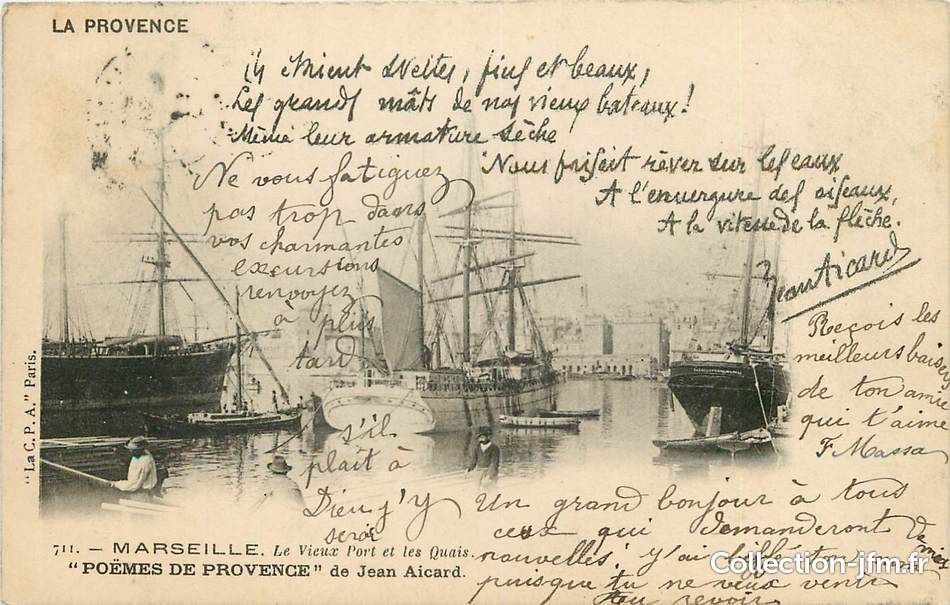 LA PROVENCE
Ils étaient sveltes, fins et beaux,
Les grands mâts de nos vieux bateaux!
Même leur armature sèche
Nous faisait rêver sur les eaux
A l'envergure des oiseaux,
A la vitesse de la flêche.
Jean Aicard
Ne vous fatiguez
pas trop dans
vos charmantes
excursions
renvoyez
à plus
tard
s'il
plait à
Dieu j'y
serai
Reçois les
meilleurs baisers
de ton amie
qui t'aime
F Massa
Un grand bonjour à tous
ceux qui demanderont de mes
nouvelles. y'ai
puisque tu ne veux venir
Au revoir
"La C. P. A." Paris.
711. — MARSEILLE. Le Vieux Port et les Quais.
"POËMES DE PROVENCE" de Jean Aicard.
Collection-jfm.fr